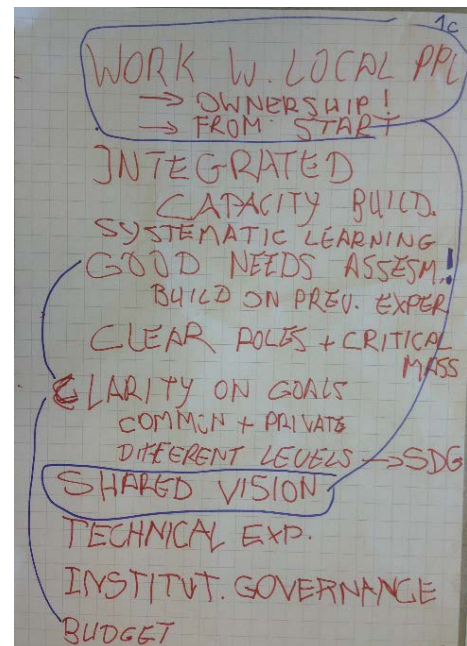 1c
WORK W. LOCAL PPL
→ OWNERSHIP!
→ FROM START
INTEGRATED
CAPACITY BUILD.
SYSTEMATIC LEARNING
GOOD NEEDS ASSESM.!
BUILD ON PREV. EXPER
CLEAR ROLES + CRITICAL
MASS
CLARITY ON GOALS
COMMON + PRIVATE
DIFFERENT LEVELS → SDG
SHARED VISION
TECHNICAL EXP.
INSTITUT. GOVERNANCE
BUDGET